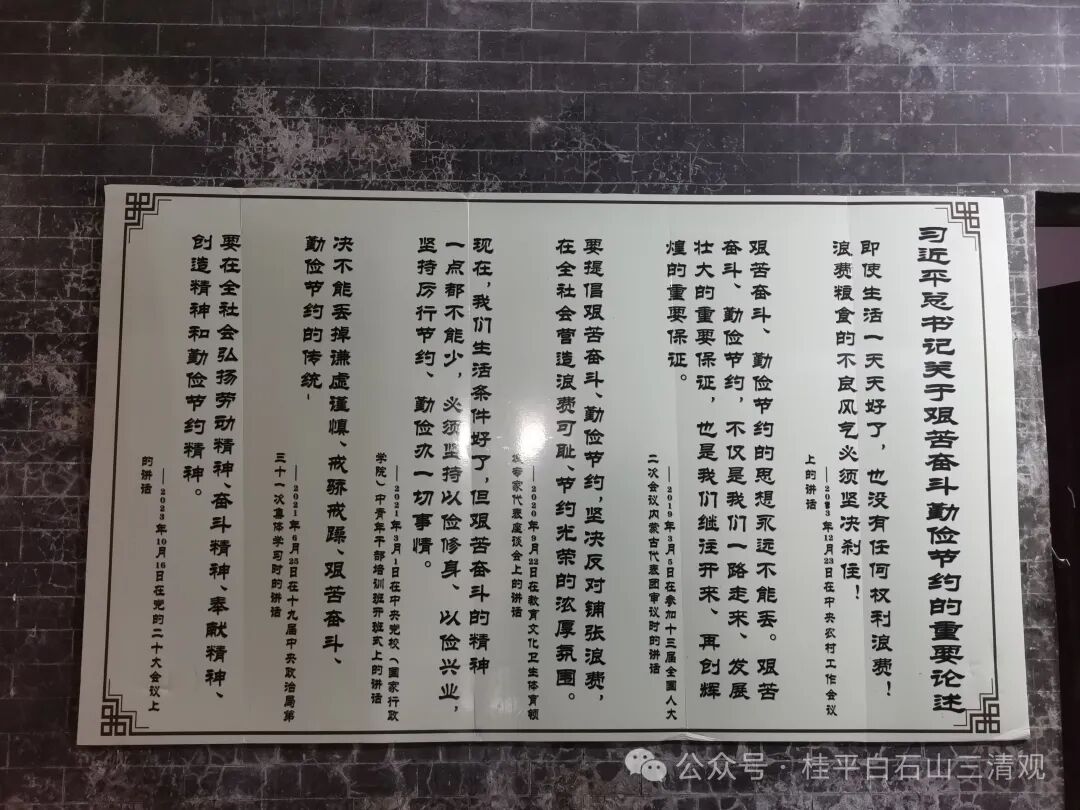 习近平总书记关于艰苦奋斗勤俭节约的重要论述
即使生活一天天好了，也没有任何权利浪费！
浪费粮食的不良风气必须坚决刹住！
——2013年12月23日在中央农村工作会议
上的讲话
艰苦奋斗、勤俭节约的思想永远不能丢。艰苦
奋斗、勤俭节约，不仅是我们一路走来、发展
壮大的重要保证，也是我们继往开来、再创辉
煌的重要保证。
——2019年3月5日在参加十三届全国人大
二次会议内蒙古代表团审议时的讲话
要提倡艰苦奋斗、勤俭节约，坚决反对铺张浪费，
在全社会营造浪费可耻、节约光荣的浓厚氛围。
——2020年9月22日在教育文化卫生体育领
域专家代表座谈会上的讲话
现在，我们生活条件好了，但艰苦奋斗的精神
一点都不能少，必须坚持以俭修身、以俭兴业，
坚持厉行节约、勤俭办一切事情。
——2021年3月1日在中央党校（国家行政
学院）中青年干部培训班开班式上的讲话
决不能丢掉谦虚谨慎、戒骄戒躁、艰苦奋斗、
勤俭节约的传统
——2021年6月25日在十九届中央政治局第
三十一次集体学习时的讲话
要在全社会弘扬劳动精神、奋斗精神、奉献精神、
创造精神和勤俭节约精神。
——2023年10月16日在党的二十大会议上
的讲话
公众号·桂平白石山三清观